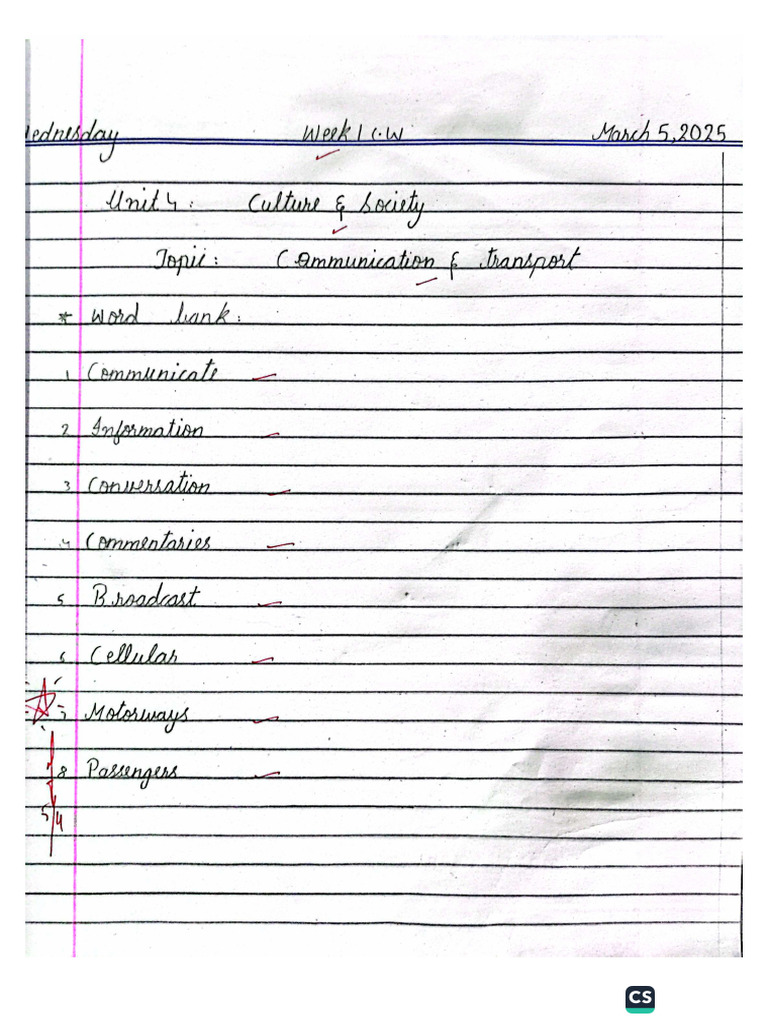 Wednesday Week 1 C.W March 5, 2025
Unit 4: Culture & Society
Topic: Communication & transport
* Word bank:
1 Communicate
2 Information
3 Conversation
4 Commentaries
5 Broadcast
6 Cellular
7 Motorways
8 Passengers
5/4
CS